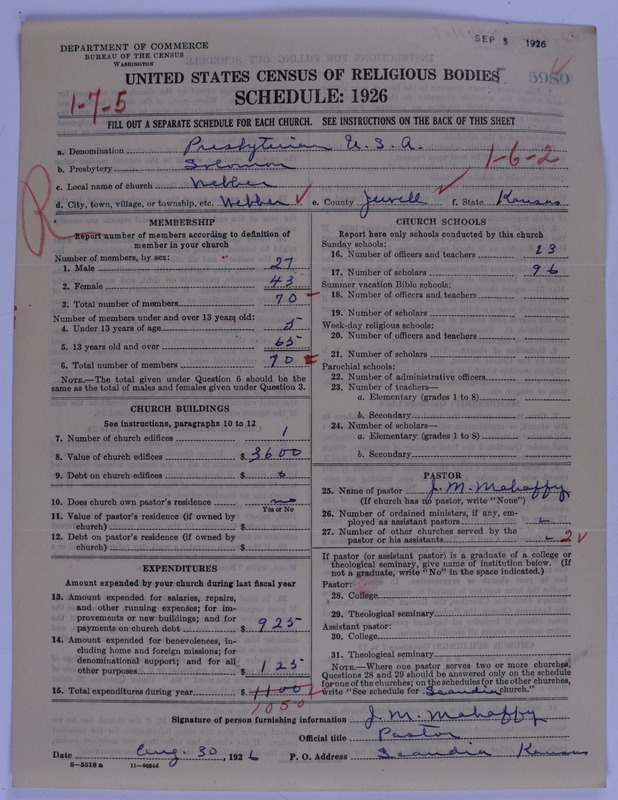 DEPARTMENT OF COMMERCE
BUREAU OF THE CENSUS
WASHINGTON
SEP 3 1926
UNITED STATES CENSUS OF RELIGIOUS BODIES
5980
1-7-5
SCHEDULE: 1926
FILL OUT A SEPARATE SCHEDULE FOR EACH CHURCH. SEE INSTRUCTIONS ON THE BACK OF THIS SHEET
a. Denomination Presbyterian U.S.A.
b. Presbytery Solomon
1-6-2
c. Local name of church Webber
d. City, town, village, or township, etc. Webber e. County Jewell f. State Kansas
R
MEMBERSHIP
Report number of members according to definition of
member in your church
Number of members, by sex:
1. Male 27
2. Female 43
3. Total number of members 70
Number of members under and over 13 years old:
4. Under 13 years of age 5
5. 13 years old and over 65
6. Total number of members 70
NOTE.—The total given under Question 6 should be
same as the total of males and females given under Question 3.
CHURCH BUILDINGS
See instructions, paragraphs 10 to 12
7. Number of church edifices 1
8. Value of church edifices $3600
9. Debt on church edifices $ 0
10. Does church own pastor's residence no
Yes or No
11. Value of pastor's residence (if owned by
church) $
12. Debt on pastor's residence (if owned by
church) $
EXPENDITURES
Amount expended by your church during last fiscal year
13. Amount expended for salaries, repairs,
and other running expenses; for im-
provements or new buildings; and for
payments on church debt $ 925
14. Amount expended for benevolences, in-
cluding home and foreign missions; for
denominational support; and for all
other purposes $ 125
15. Total expenditures during year $ 1100
1050
CHURCH SCHOOLS
Report here only schools conducted by this church
Sunday schools:
16. Number of officers and teachers 13
17. Number of scholars 96
Summer vacation Bible schools:
18. Number of officers and teachers
19. Number of scholars
Week-day religious schools:
20. Number of officers and teachers
21. Number of scholars
Parochial schools:
22. Number of administrative officers
23. Number of teachers—
a. Elementary (grades 1 to 8)
b. Secondary
24. Number of scholars—
a. Elementary (grades 1 to 8)
b. Secondary
PASTOR
25. Name of pastor J. M. Mahaffy
(If church has no pastor, write "None")
26. Number of ordained ministers, if any, em-
ployed as assistant pastors
27. Number of other churches served by the
pastor or his assistants 2
If pastor (or assistant pastor) is a graduate of a college or
theological seminary, give name of institution below. (If
not a graduate, write "No" in the space indicated.)
Pastor:
28. College
29. Theological seminary
Assistant pastor:
30. College
31. Theological seminary
NOTE.—Where one pastor serves two or more churches,
Questions 28 and 29 should be answered only on the schedule
for one of the churches; on the schedules for the other churches,
write "See schedule for Scandia church."
Signature of person furnishing information J. M. Mahaffy
Official title Pastor
Date Aug. 30, 1926 P. O. Address Scandia Kansas
8-5518 a